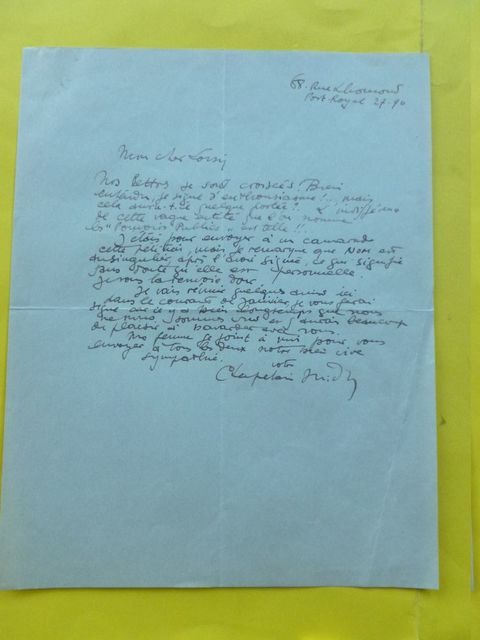 68. Rue Lhomond
Port Royal 27-90
Mon cher Loisy
Nos lettres se sont croisées! Bien
entendu, je signe d'enthousiasme!.. mais
cela aura-t-il quelque portée?
de cette vague entité que l'on nomme
les "Pouvoirs Publics" est telle!!
J'étais pour envoyer à un camarade
cette pétition, mais je remarque que Nom est
au singulier, après l'avoir signée, ce qui signifie
sans doute qu'elle est personnelle.
je vous la renvoie donc.
Je vais réunir quelques amis ici
dans le courant de janvier, je vous ferai
signe car il y a bien longtemps que nous
ne nous sommes vus et j'aurais beaucoup
de plaisir à bavarder avec vous.
Ma femme se joint à moi pour vous
envoyer à tous les deux notre bien vive
sympathie.
votre
Chapelain Midy